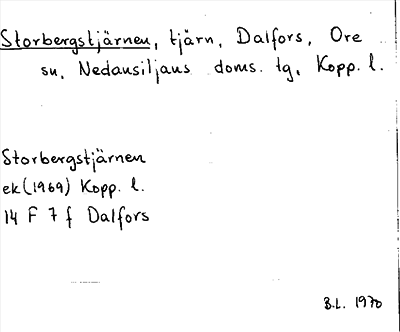 Storbergstjärnen, tjärn, Dalfors, Ore
sn, Nedansiljans doms. tg, Kopp. l.
Storbergstjärnen
ek (1969) Kopp. l.
14 F 7 f Dalfors
B.L. 1970